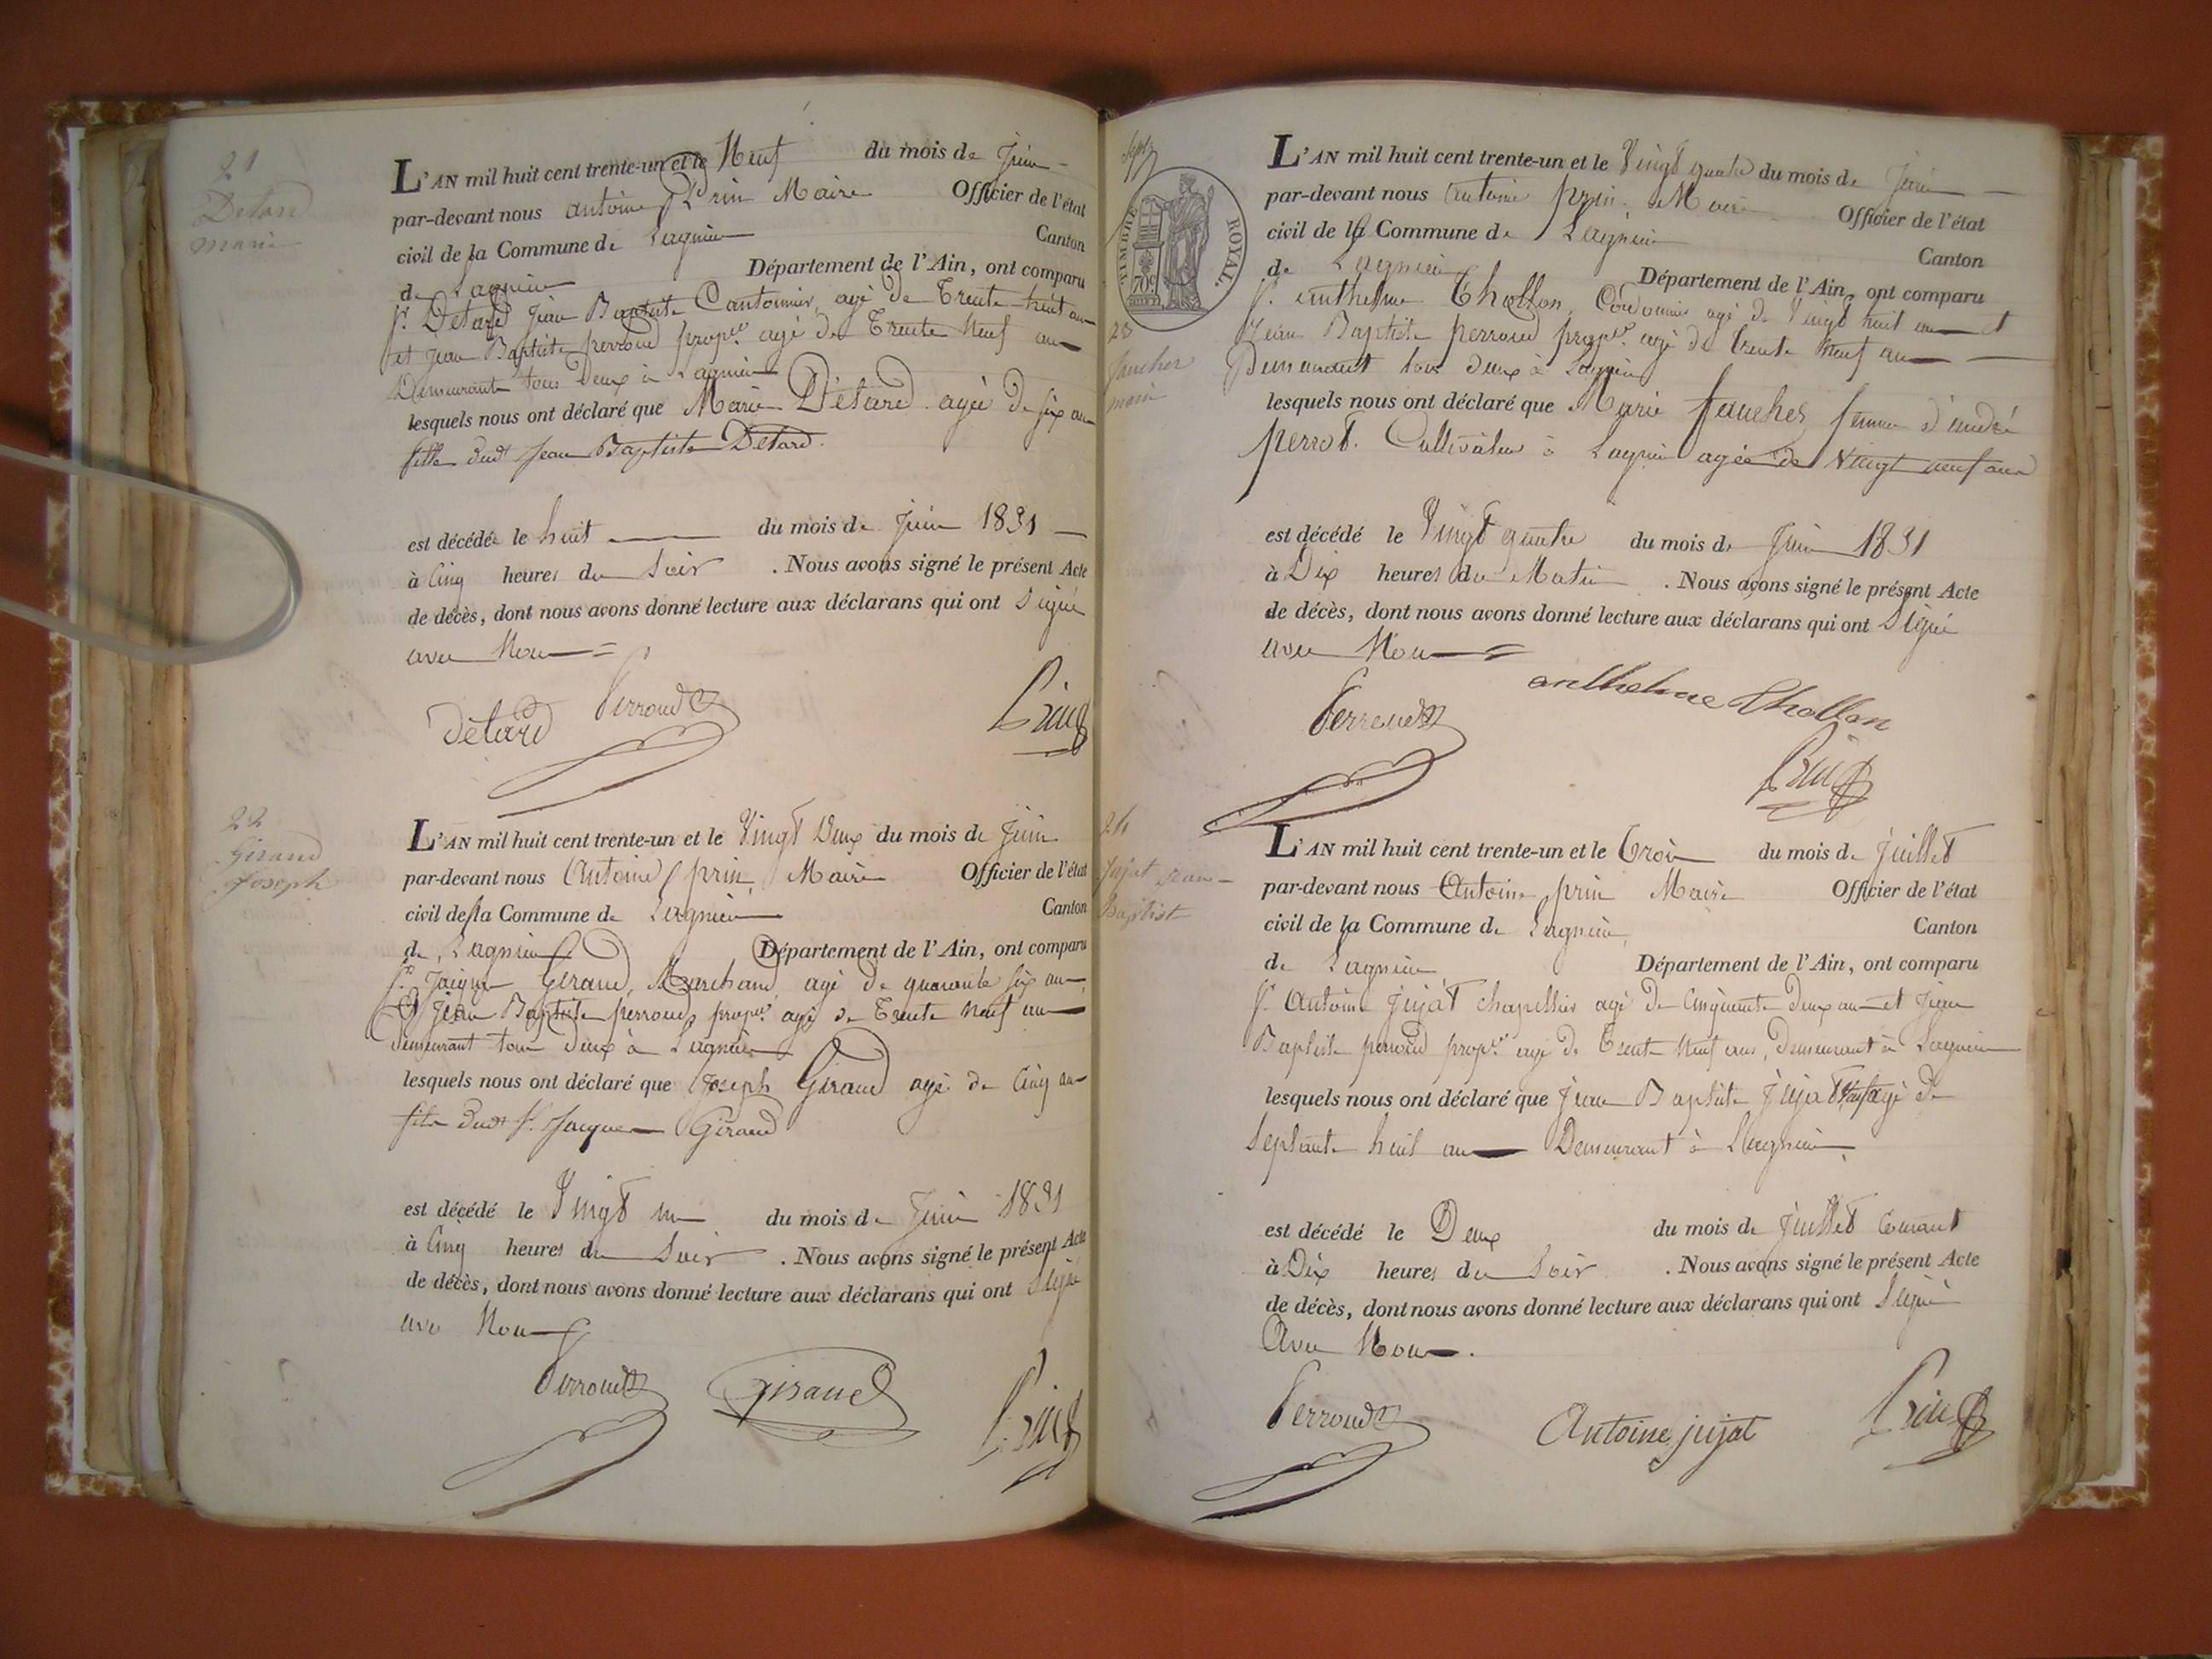 21
Détard
marie
L'AN mil huit cent trente-un et le Neuf du mois de Juin
par-devant nous antoine Prin Maire Officier de l'état
civil de la Commune de Lagnieu Canton
de Lagnieu Département de l'Ain, ont comparu
Sr. Détard Jean Baptiste Cantonnier, agé de Trente huit ans
et Jean Baptiste perroud propre. agé de Trente Neuf ans
Demeurants tous Deux à Lagnieu
lesquels nous ont déclaré que Marie Détard agée de six ans
fille dudt Jean Baptiste Détard.
est décédée le huit du mois de Juin 1831
à Cinq heures du Soir . Nous avons signé le présent Acte
de décès, dont nous avons donné lecture aux déclarans qui ont Signé
avec Nous
Détard Perroud Prin
22
Giraud
Joseph
L'AN mil huit cent trente-un et le Vingt Deux du mois de Juin
par-devant nous Antoine prin, Maire Officier de l'état
civil de la Commune de Lagnieu Canton
de Lagnieu Département de l'Ain, ont comparu
Sr. Jacques Giraud, Marchand agé de quarante six ans,
Et Jean Baptiste perroud, propre. agé de Trente Neuf ans
demeurant tous deux à Lagnieu
lesquels nous ont déclaré que Joseph Giraud agé de Cinq ans
fils dudt Sr. Jacques Giraud
est décédé le Vingt un du mois de Juin 1831
à Cinq heures du Soir . Nous avons signé le présent Acte
de décès, dont nous avons donné lecture aux déclarans qui ont Signé
avec Nous
Perroud Giraud Prin
TIMBRE ROYAL.
23
fauches
marie
L'AN mil huit cent trente-un et le Vingt quatre du mois de Juin
par-devant nous Antoine prin Maire Officier de l'état
civil de la Commune de Lagnieu Canton
de Lagnieu Département de l'Ain, ont comparu
Sr. anthelme Chollon, Cordonnier agé de Vingt huit ans et
Jean Baptiste perroud propre. agé de trente Neuf ans
Demeurant tous deux à Lagnieu
lesquels nous ont déclaré que Marie fauches femme d'andré
perrot. Cultivateur à Lagnieu agée de Vingt neuf ans
est décédé le Vingt quatre du mois de Juin 1831
à Dix heures du Matin . Nous avons signé le présent Acte
de décès, dont nous avons donné lecture aux déclarans qui ont Signé
avec Nous
Perroud anthelme Chollon
Prin
24
Jujat Jean
Baptiste
L'AN mil huit cent trente-un et le Trois du mois de Juillet
par-devant nous Antoine prin Maire Officier de l'état
civil de la Commune de Lagnieu, Canton
de Lagnieu Département de l'Ain, ont comparu
Sr. Antoine Jujat chapellier agé de Cinquante deux ans et Jean
Baptiste perroud propre. agé de Trente Neuf ans, Demeurant à Lagnieu
lesquels nous ont déclaré que Jean Baptiste Jujat agé de
Septante huit ans Demeurant à Lagnieu
est décédé le Deux du mois de Juillet Courant
à Dix heures du Soir . Nous avons signé le présent Acte
de décès, dont nous avons donné lecture aux déclarans qui ont Signé
Avec Nous.
Perroud Antoine jujat Prin